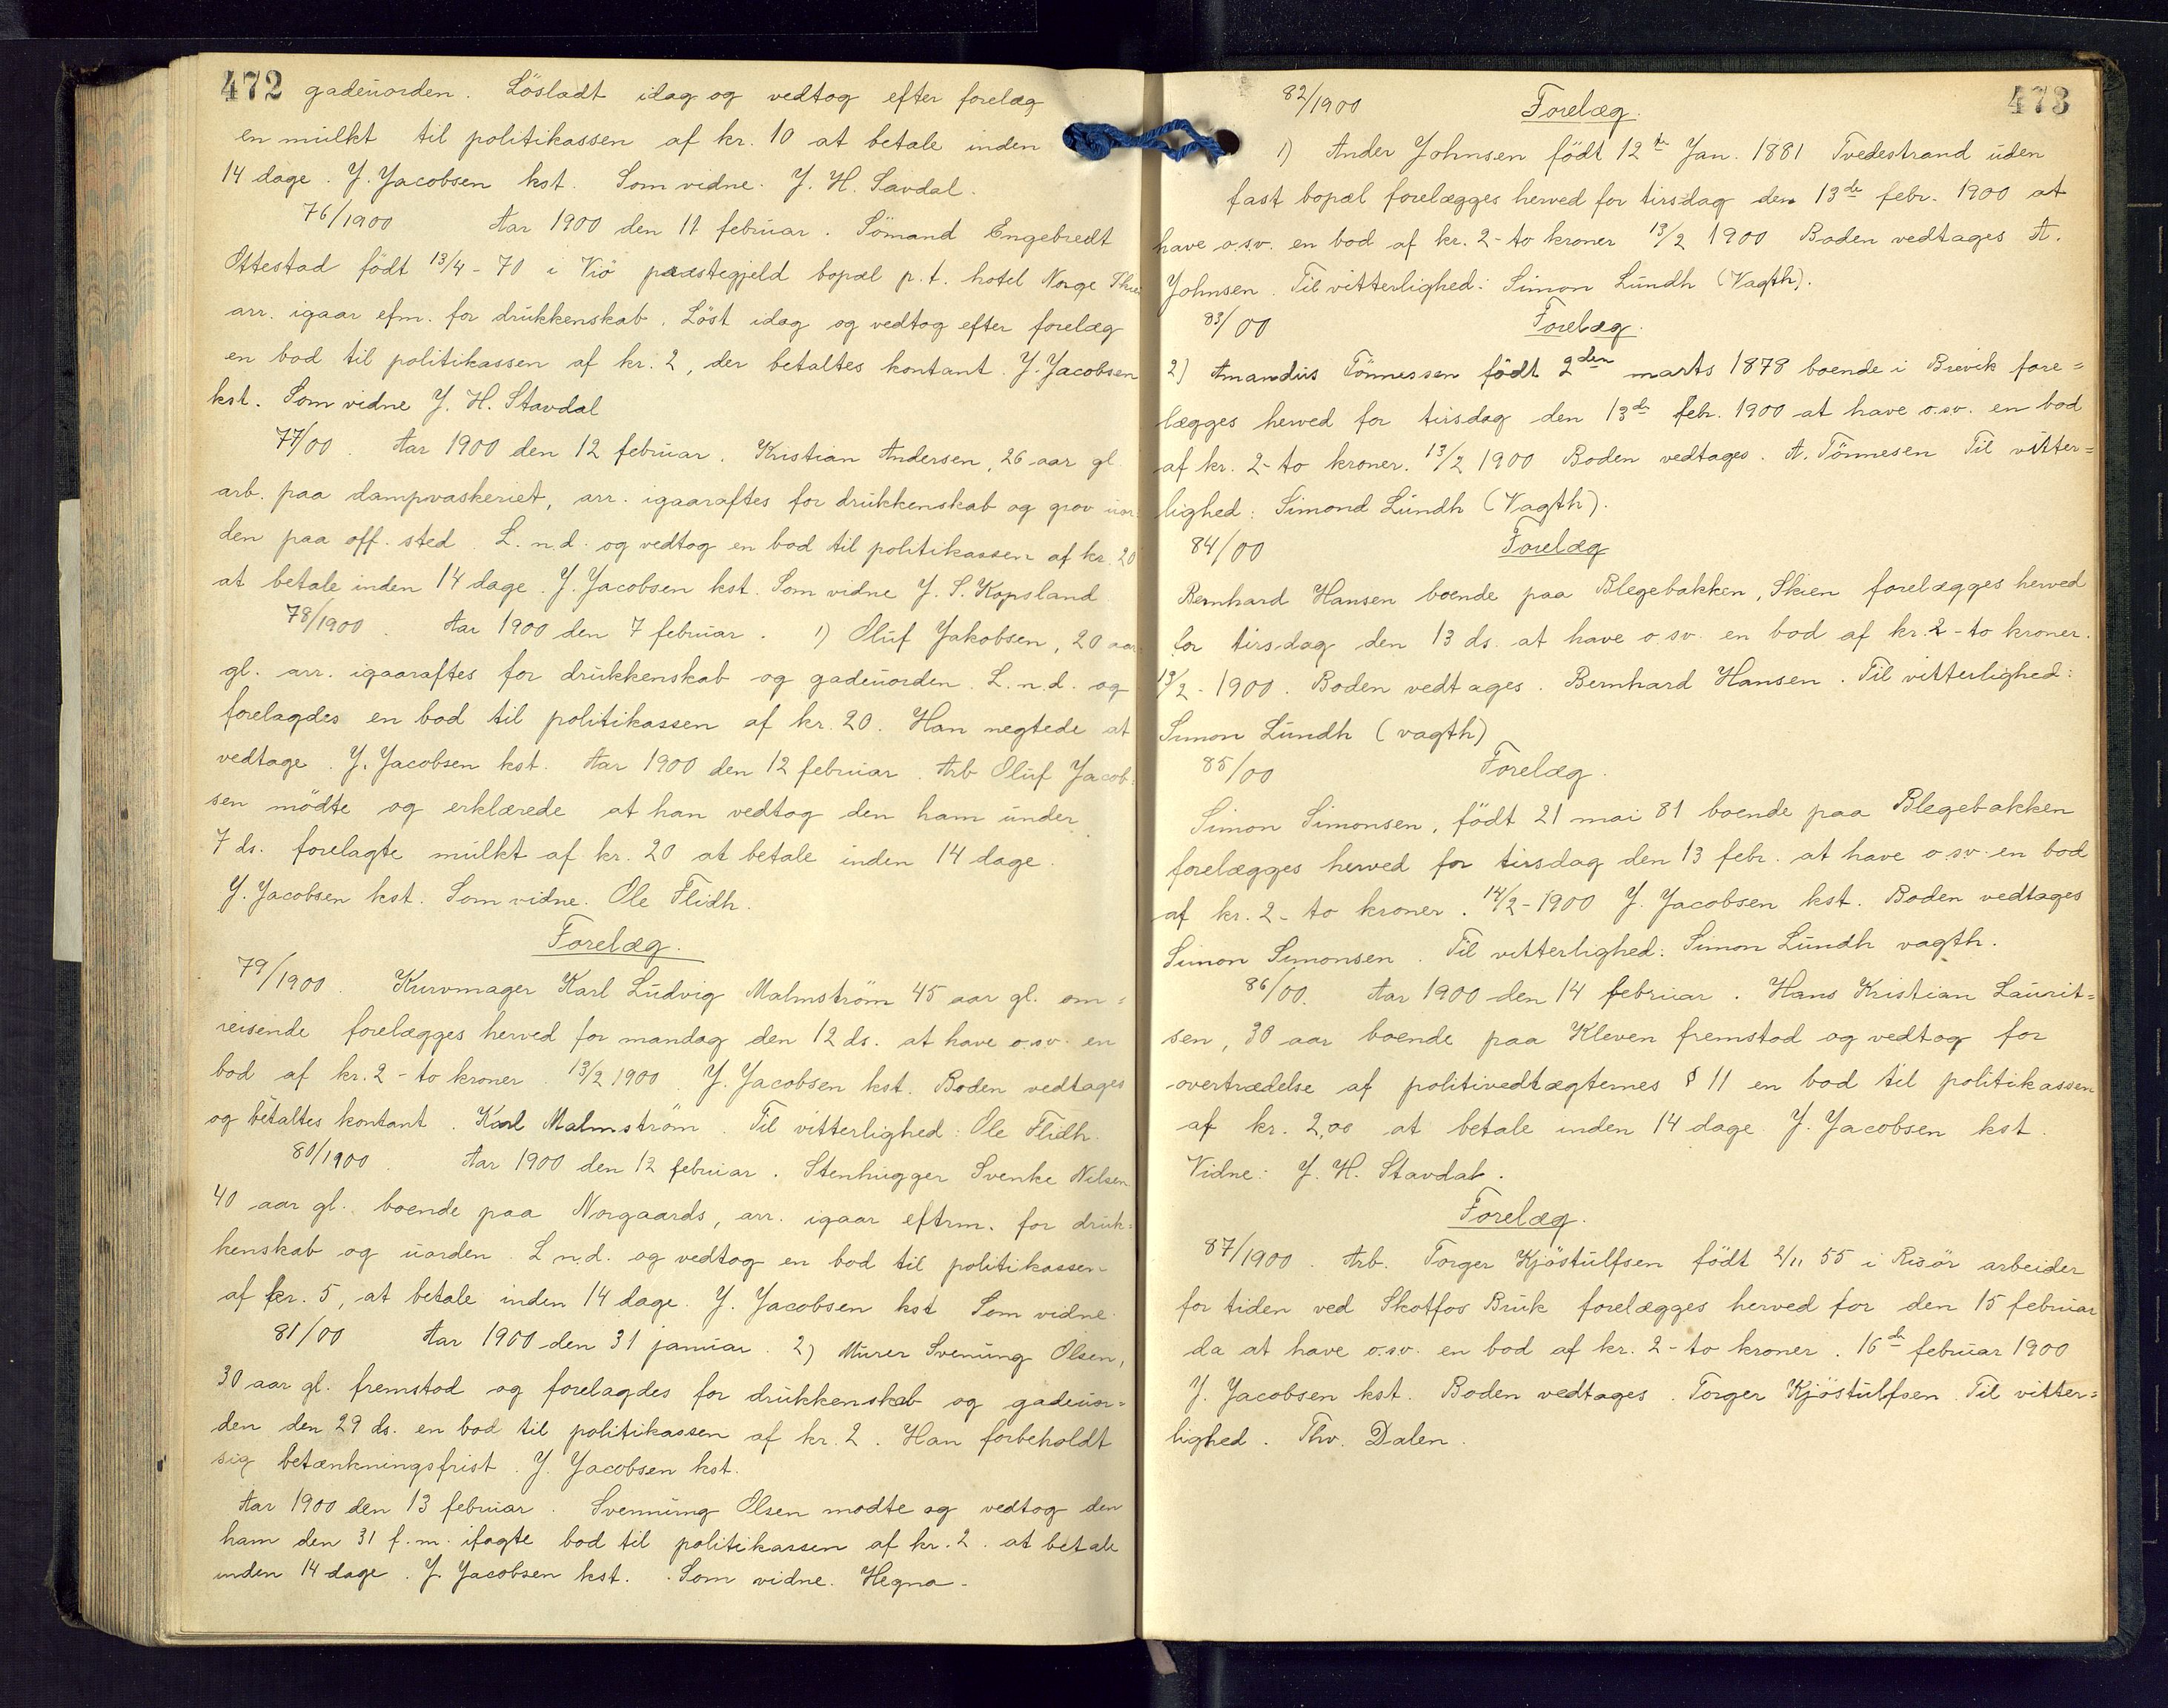 472 gadeuorden. Lösladt idag og vedtog efter forelæg
en mulkt til politikassen af kr. 10 at betale inden
14 dage. J. Jacobsen kst. Som vidne. J. H. Savdal.
76/1900 Aar 1900 den 11 februar. Sömand Engebredt
Ottestad födt 13/4-70 i præstegjeld bopæl p.t. hotel Norge
arr. igaar efm. for drukkenskab. Löst idag og vedtog efter forelæg
en bod til politikassen af kr. 2, der betaltes kontant. J. Jacobsen
kst. Som vidne J. H. Stavdal
77/00. Aar 1900 den 12 februar. Kristian Andersen, 26 aar gl.
arb. paa dampvaskeriet, arr. igaaraftes for drukkenskab og grov uor
den paa off. sted. L. n. d. og vedtog en bod til politikassen af kr. 20
at betale inden 14 dage. J. Jacobsen kst. Som vidne J. S. Kopsland
78/1900. Aar 1900 den 7 februar. 1) Oluf Jakobsen, 20 aar
gl. arr. igaaraftes for drukkenskab og gadeuorden. L. n. d. og
forelagdes en bod til politikassen af kr. 20. Han negtede at
vedtage. J. Jacobsen kst. Aar 1900 den 12 februar. Arb Oluf Jacob-
sen mödte og erklærede at han vedtog den ham under
7 ds. forelagte mulkt af kr. 20 at betale inden 14 dage.
J. Jacobsen kst. Som vidne. Ole Flidh.
Forelæg.
79/1900. Kurvmager Karl Ludvig Malmström 45 aar gl. om=
reisende forelægges herved for mandag den 12 ds. at have o.s.v. en
bod af kr. 2 - to kroner. 13/2 1900. J. Jacobsen kst. Boden vedtages
og betaltes kontant. Karl Malmström. Til vitterlighed: Ole Flidh.
80/1900. Aar 1900 den 12 februar. Stenhugger Svenke Nilsen
40 aar gl. boende paa Norgaards, arr. igaar eftrm. for druk=
kenskab og uorden. L. n. d. og vedtog en bod til politikassen
af kr. 5, at betale inden 14 dage. J. Jacobsen kst Som vidne.
81/00 Aar 1900 den 31 januar. 2) Murer Svenung Olsen,
30 aar gl. fremstod og forelagdes for drukkenskab og gadeuor=
den den 29 ds. en bod til politikassen af kr. 2. Han forbeholdt
sig betænkningsfrist. J. Jacobsen kst.
Aar 1900 den 13 februar. Svennung Olsen modte og vedtog den
ham den 31 f. m. ilagte bod til politikassen af kr. 2. at betale
inden 14 dage. J. Jacobsen kst. Som vidne. Hegna.
473
82/1900 Forelæg.
1) Ander Johnsen födt 12te Jan. 1881 Tvedestrand uden
fast bopæl forelægges herved for tirsdag den 13de febr. 1900 at
have o.s.v. en bod af kr. 2 - to kroner 13/2 1900 Boden vedtages A.
Johnsen. Til vitterlighed: Simon Lundh (Vagth).
83/00 Forelæg.
2) Amandus Tönnessen födt 2den marts 1878 boende i Brevik fore=
lægges herved for tirsdag den 13de febr. 1900 at have o.s.v. en bod
af kr. 2 - to kroner. 13/2 1900 Boden vedtages. A. Tönnesen Til vitter=
lighed: Simond Lundh (Vagth).
84/00 Forelæg
Bernhard Hansen boende paa Blegebakken, Skien forelægges herved
for tirsdag den 13 ds. at have o.s.v. en bod af kr. 2 - to kroner.
13/2 - 1900. Boden vedtages. Bernhard Hansen. Til vitterlighed:
Simon Lundh (vagth)
85/00 Forelæg.
Simon Simonsen, födt 21 mai 81 boende paa Blegebakken
forelægges herved for tirsdag den 13 febr. at have o.s.v. en bod
af kr. 2 - to kroner. 14/2 - 1900 J. Jacobsen kst. Boden vedtages
Simon Simonsen. Til vitterlighed: Simon Lundh vagth.
86/00. Aar 1900 den 14 februar. Hans Kristian Laurit=
sen, 30 aar boende paa Kleven fremstod og vedtog for
overtrædelse af politivedtægternes § 11 en bod til politikassen
af kr. 2,00 at betale inden 14 dage J. Jacobsen kst.
Vidne: J. H. Stavdal.
Forelæg.
87/1900. Arb. Torger Kjöstulfsen födt 2/11 55 i Risör arbeider
for tiden ved Skotfos Bruk forelægges herved for den 15 februar
da at have o.s.v. en bod af kr. 2 - to kroner. 16de februar 1900
J. Jacobsen kst. Boden vedtages. Torger Kjöstulfsen. Til vitter=
lighed. Thv. Dalen.